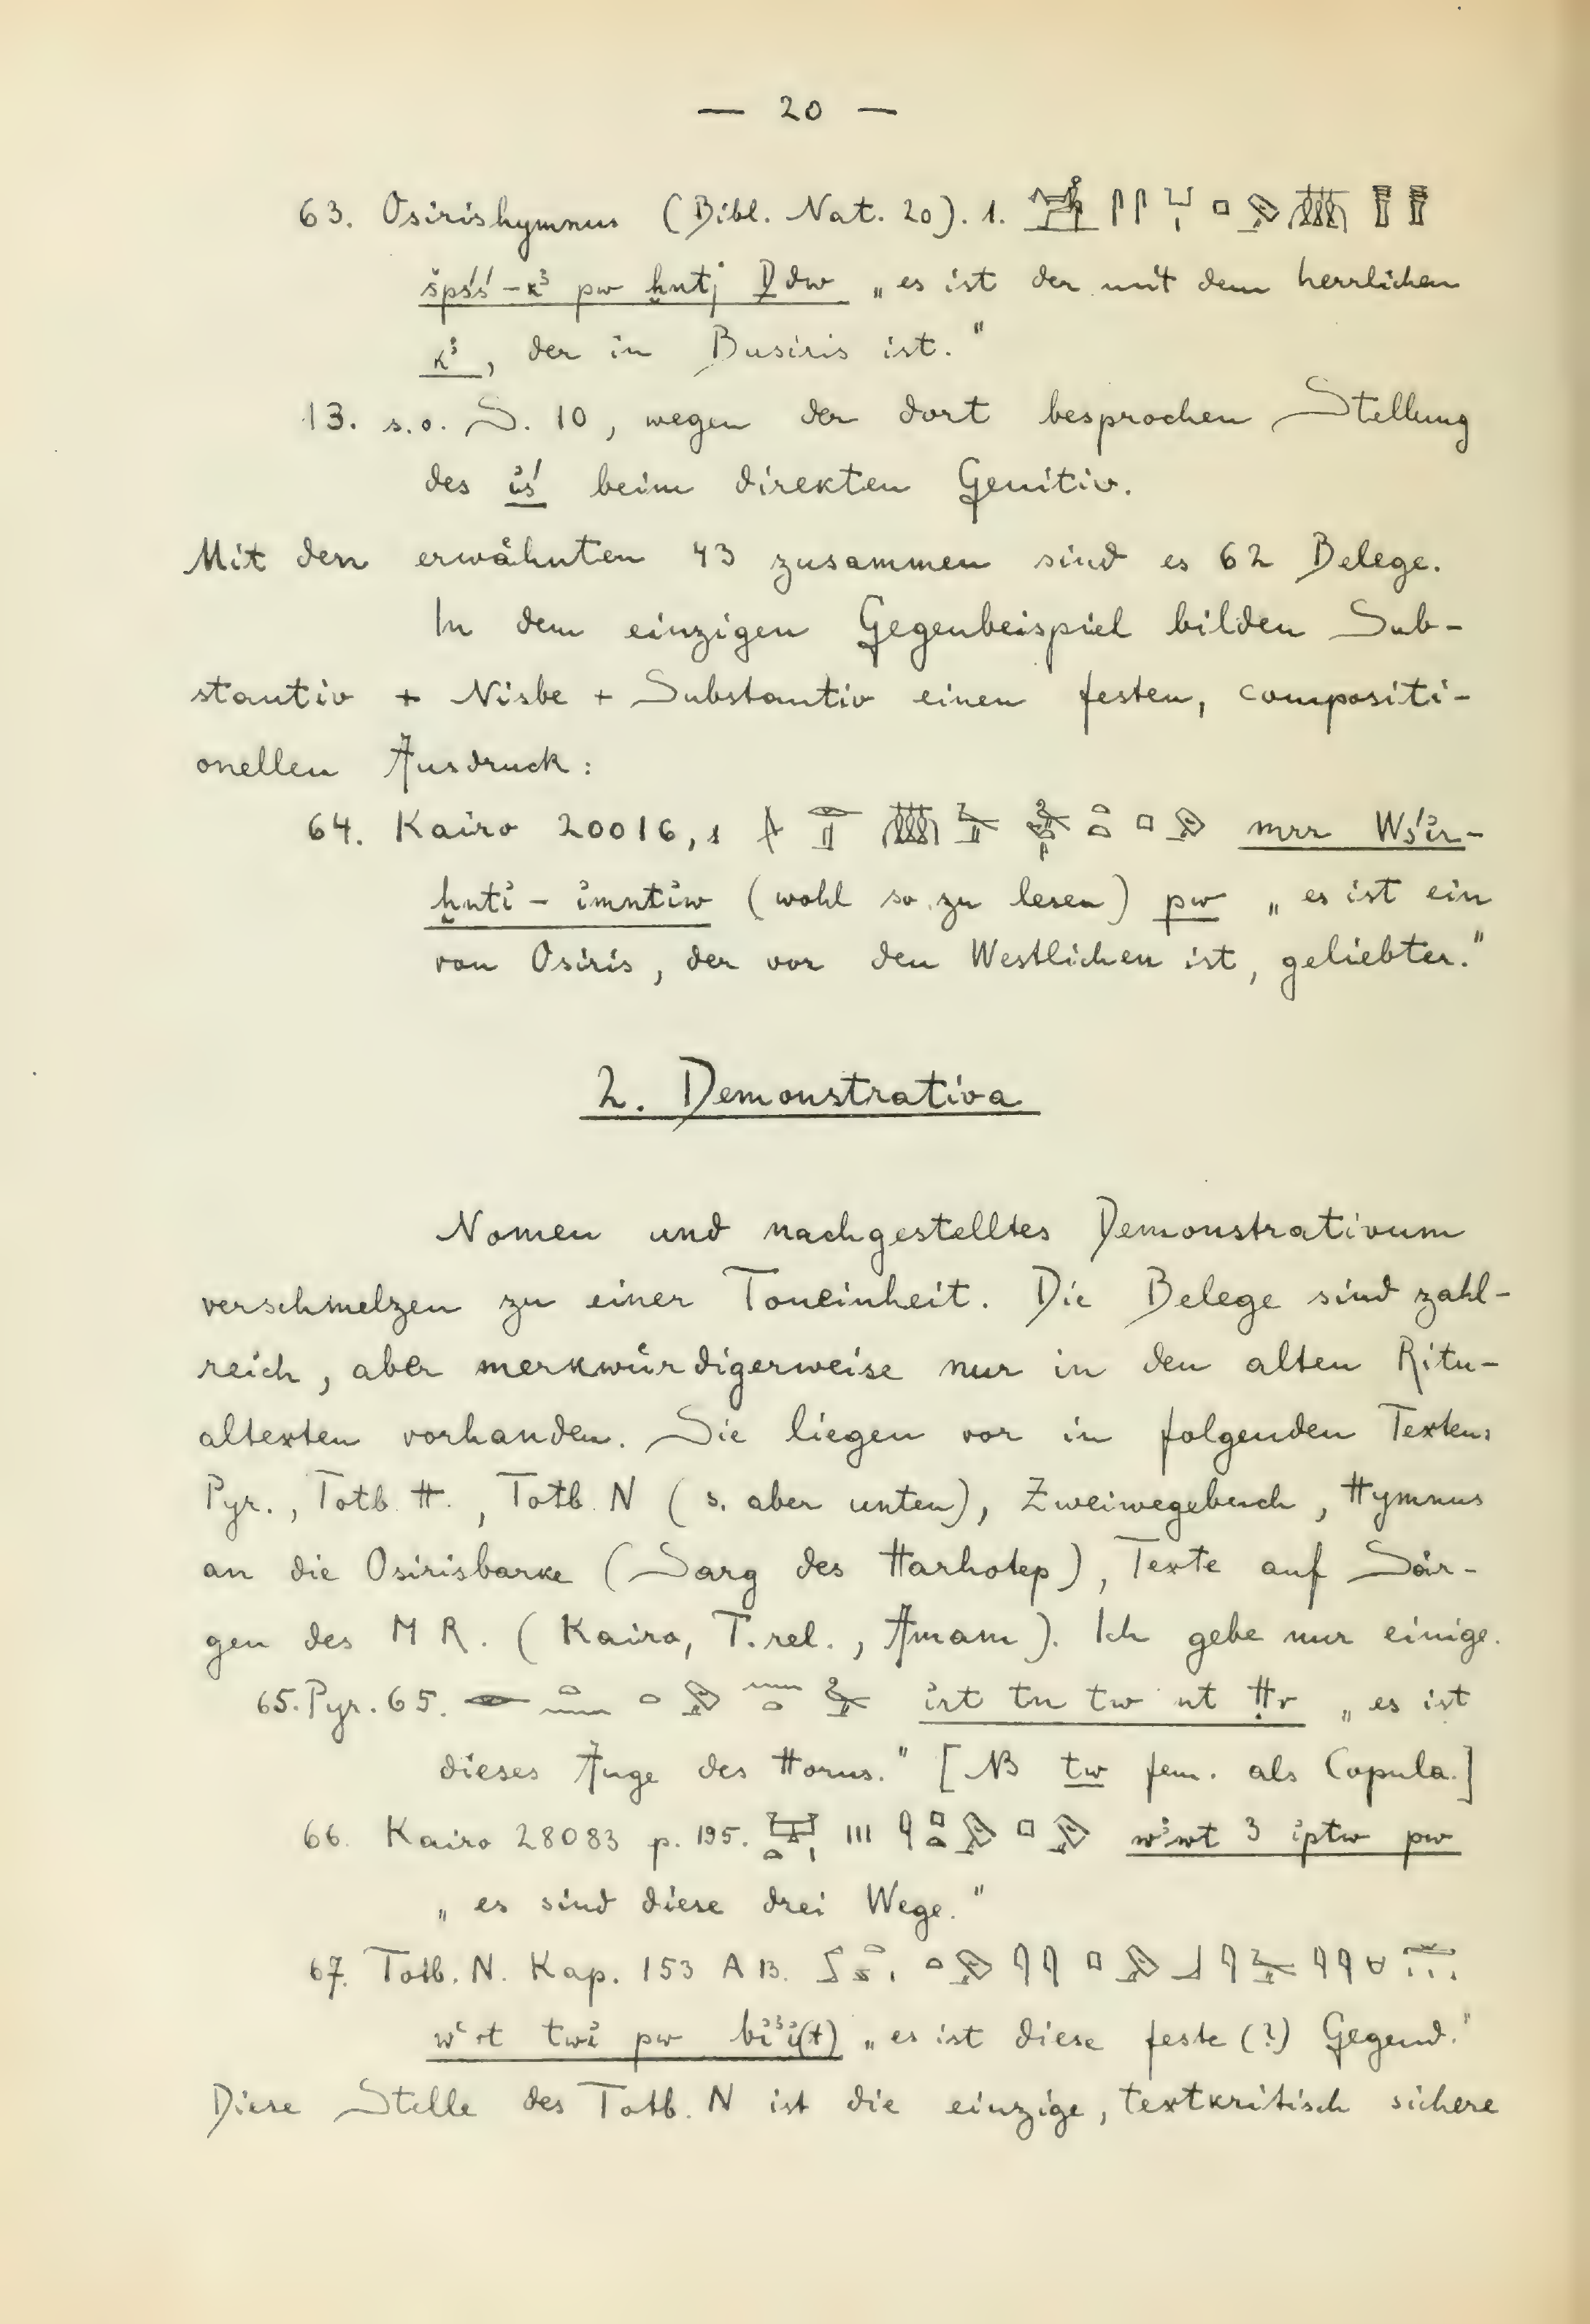 — 20 —
63. Osirishymnus (Bibl. Nat. 20). 1.
špśś-kꜣ pw ḫntj Ḏdw „es ist der mit dem herrlichen
kꜣ, der in Busiris ist."
13. s.o. S. 10, wegen der dort besprochen Stellung
des i҆ś beim direkten Genitiv.
Mit den erwähnten 43 zusammen sind es 62 Belege.
In dem einzigen Gegenbeispiel bilden Sub-
stantiv + Nisbe + Substantiv einen festen, compositi-
onellen Ausdruck:
64. Kairo 20016,1 mrr Wśi҆r-
ḫnti҆ - i҆mnti҆w (wohl so zu lesen) pw „es ist ein
von Osiris, der vor den Westlichen ist, geliebter."
2. Demonstrativa
Nomen und nachgestelltes Demonstrativum
verschmelzen zu einer Toneinheit. Die Belege sind zahl-
reich, aber merkwürdigerweise nur in den alten Ritu-
altexten vorhanden. Sie liegen vor in folgenden Texten:
Pyr., Totb. H., Totb. N (s. aber unten), Zweiwegebuch, Hymnus
an die Osirisbarke (Sarg des Harhotep), Texte auf Sär-
gen des MR. (Kairo, T. rel., Amam). Ich gebe nur einige.
65. Pyr. 65. i҆rt tn tw nt Ḥr „es ist
dieses Auge des Horus." [NB tw fem. als Copula.]
66. Kairo 28083 p. 195. wꜣwt 3 i҆ptw pw
„es sind diese drei Wege."
67. Totb. N. Kap. 153 A B.
wꜥrt twi҆ pw bi҆ꜣi҆(t) „es ist diese feste (?) Gegend."
Diese Stelle des Totb. N ist die einzige, textkritisch sichere